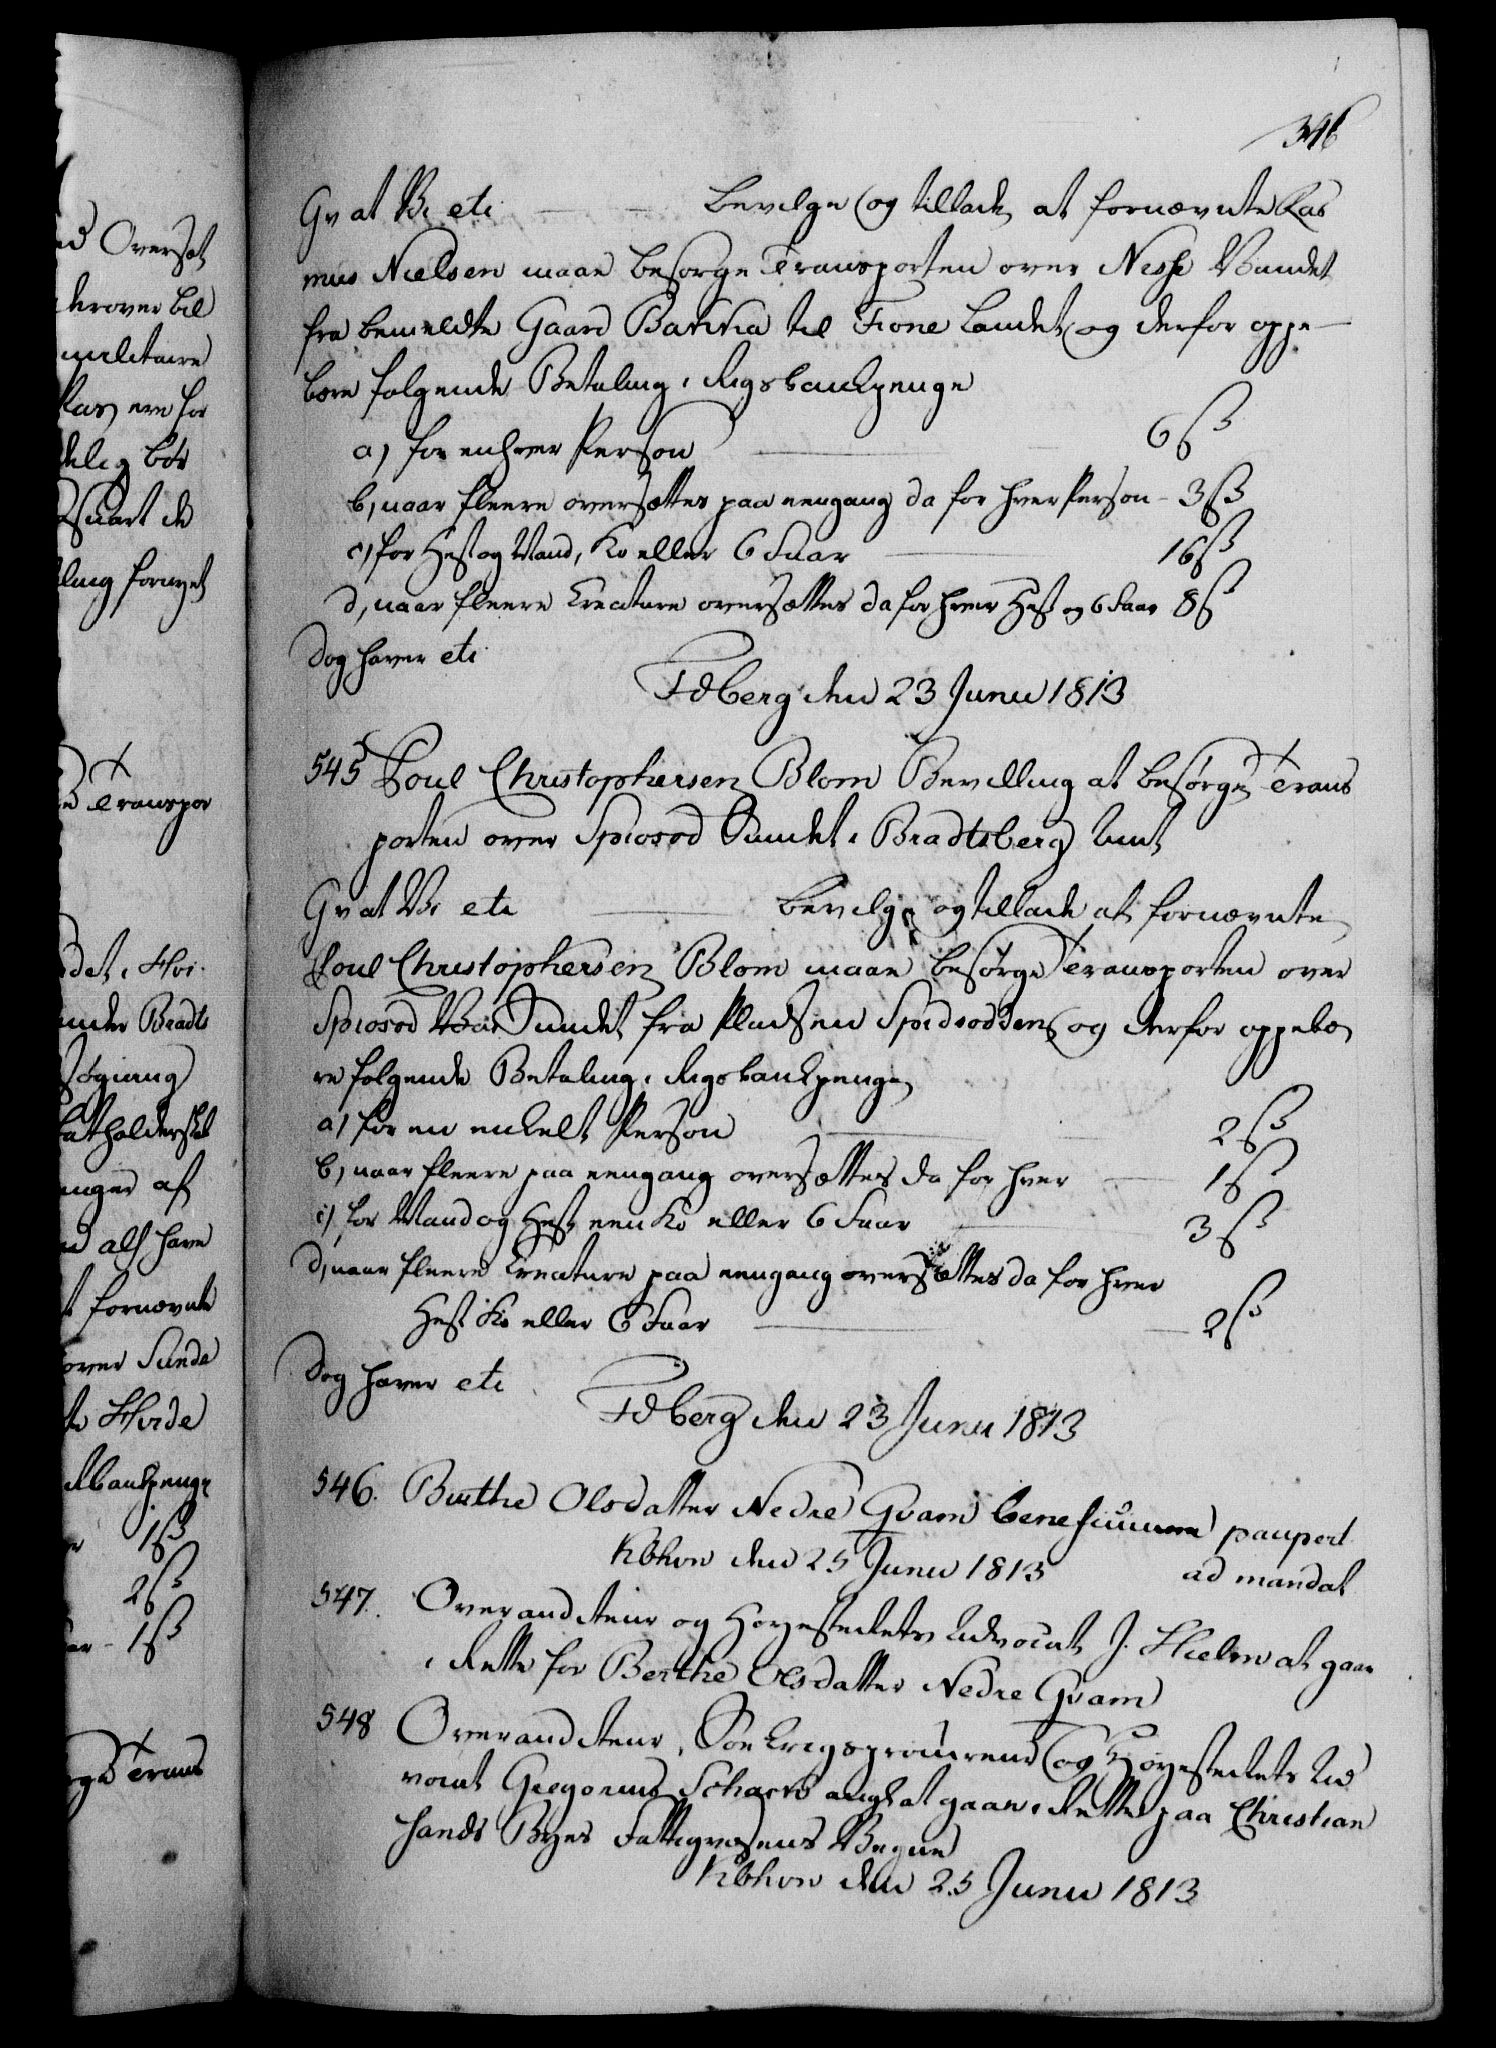 346
Gv at Vi etc bevilge og tillade, at fornævnte Ras
mus Nielsen maae besørge Transporten over Neshe Vandet
fra bemeldte Gaard Bakka til Fione Landet og derfor oppe-
bære følgende Betaling i Rigsbankpenge
a) for enhver Person 6 ß
b, naar fleere oversættes paa eengang da for hver Person - 3 ß
c) for Hest og Mand, Ko eller 6 Faar 16 ß
d, naar fleere Creature oversættes da for hver Hest og 6 Faar 8 ß
Dog haver etc
Fdberg den 23 Junii 1813
545 Poul Christophersen Blom Bevilling at besørge Trans
porten over Spiosod Sundet i Bradtsberg Amt
Gv at Vi etc bevilge og tillade at fornævnte
Poul Christophersen Blom maae besørge Transporten over
Spiosod Sundet fra Pladsen Spidsodden og derfor oppebæ
re følgende Betaling i Rigsbankpenge
a) for en enkelt Person 2 ß
b, naar fleere paa eengang oversættes da for hver 1 ß
c) for Mand og Hest een Ko eller 6 Faar 3 ß
d, naar fleere Creature paa eengang oversættes da for hver
Hest Ko eller 6 Faar 2 ß
Dog haver etc
Fdberg den 23 Junii 1813
546. Birthe Olsdatter Nedre Qvam beneficium paupert
Kbhvn den 25 Junii 1813 ad mandat
547. Overauditeur og Høyesteretts Advocat J. Hielm at gaae
i Rette for Berthe Olsdatter Nedre Qvam
548 Overauditeur, Søe Krigsprocureur og Høyesteretts Ad
vocat Gregorius Schacht at gaae i Rette paa Christian
sands Byes Fattigvæsens Vegne
Kbhvn den 25 Junii 1813